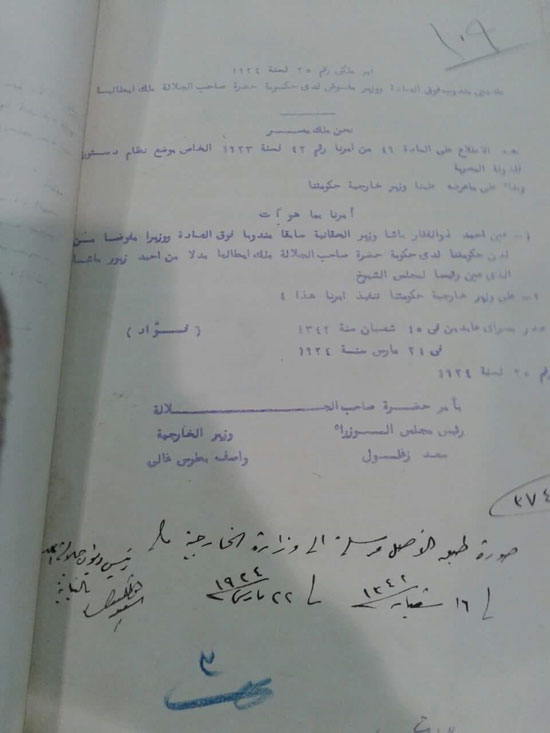 ١٠٩
امر ملكى رقم ٢٥ لسنة ١٩٢٤
بتعيين مندوب فوق العادة ووزير مفوض لدى حكومة حضرة صاحب الجلالة ملك ايطاليا
نحن ملك مصر
بعد الاطلاع على المادة ٤٦ من امرنا رقم ٤٢ لسنة ١٩٢٣ الخاص بوضع نظام دستورى
للدولة المصرية
وبناء على ماعرضه علينا وزير خارجية حكومتنا
أمرنا بما هو آت
١ - عين احمد ذوالفقار باشا وزير الحقانية سابقا مندوبا فوق العادة ووزيرا مفوضا من
لدن حكومتنا لدى حكومة حضرة صاحب الجلالة ملك ايطاليا بدلا من احمد زيور باشا
الذى عين رئيسا لمجلس الشيوخ
٢ - على وزير خارجية حكومتنا تنفيذ امرنا هذا ٤
صدر بسراى عابدين فى ١٥ شعبان سنة ١٣٤٢ ( فؤاد )
فى ٢١ مارس سنة ١٩٢٤
رقم ٢٥ لسنة ١٩٢٤
بأمر حضرة صاحب الجــلالة
رئيس مجلس الــوزراء وزير الخارجية
سعد زغلول واصف بطرس غالى
٣٧٤
صورة طبق الأصل مرسلة الى وزارة الخارجية
فى ١٦ شعبان ١٣٤٢ فى ٢٢ مارس ١٩٢٤
رئيس ديوان جلالة الملك
بالنيابة
٣